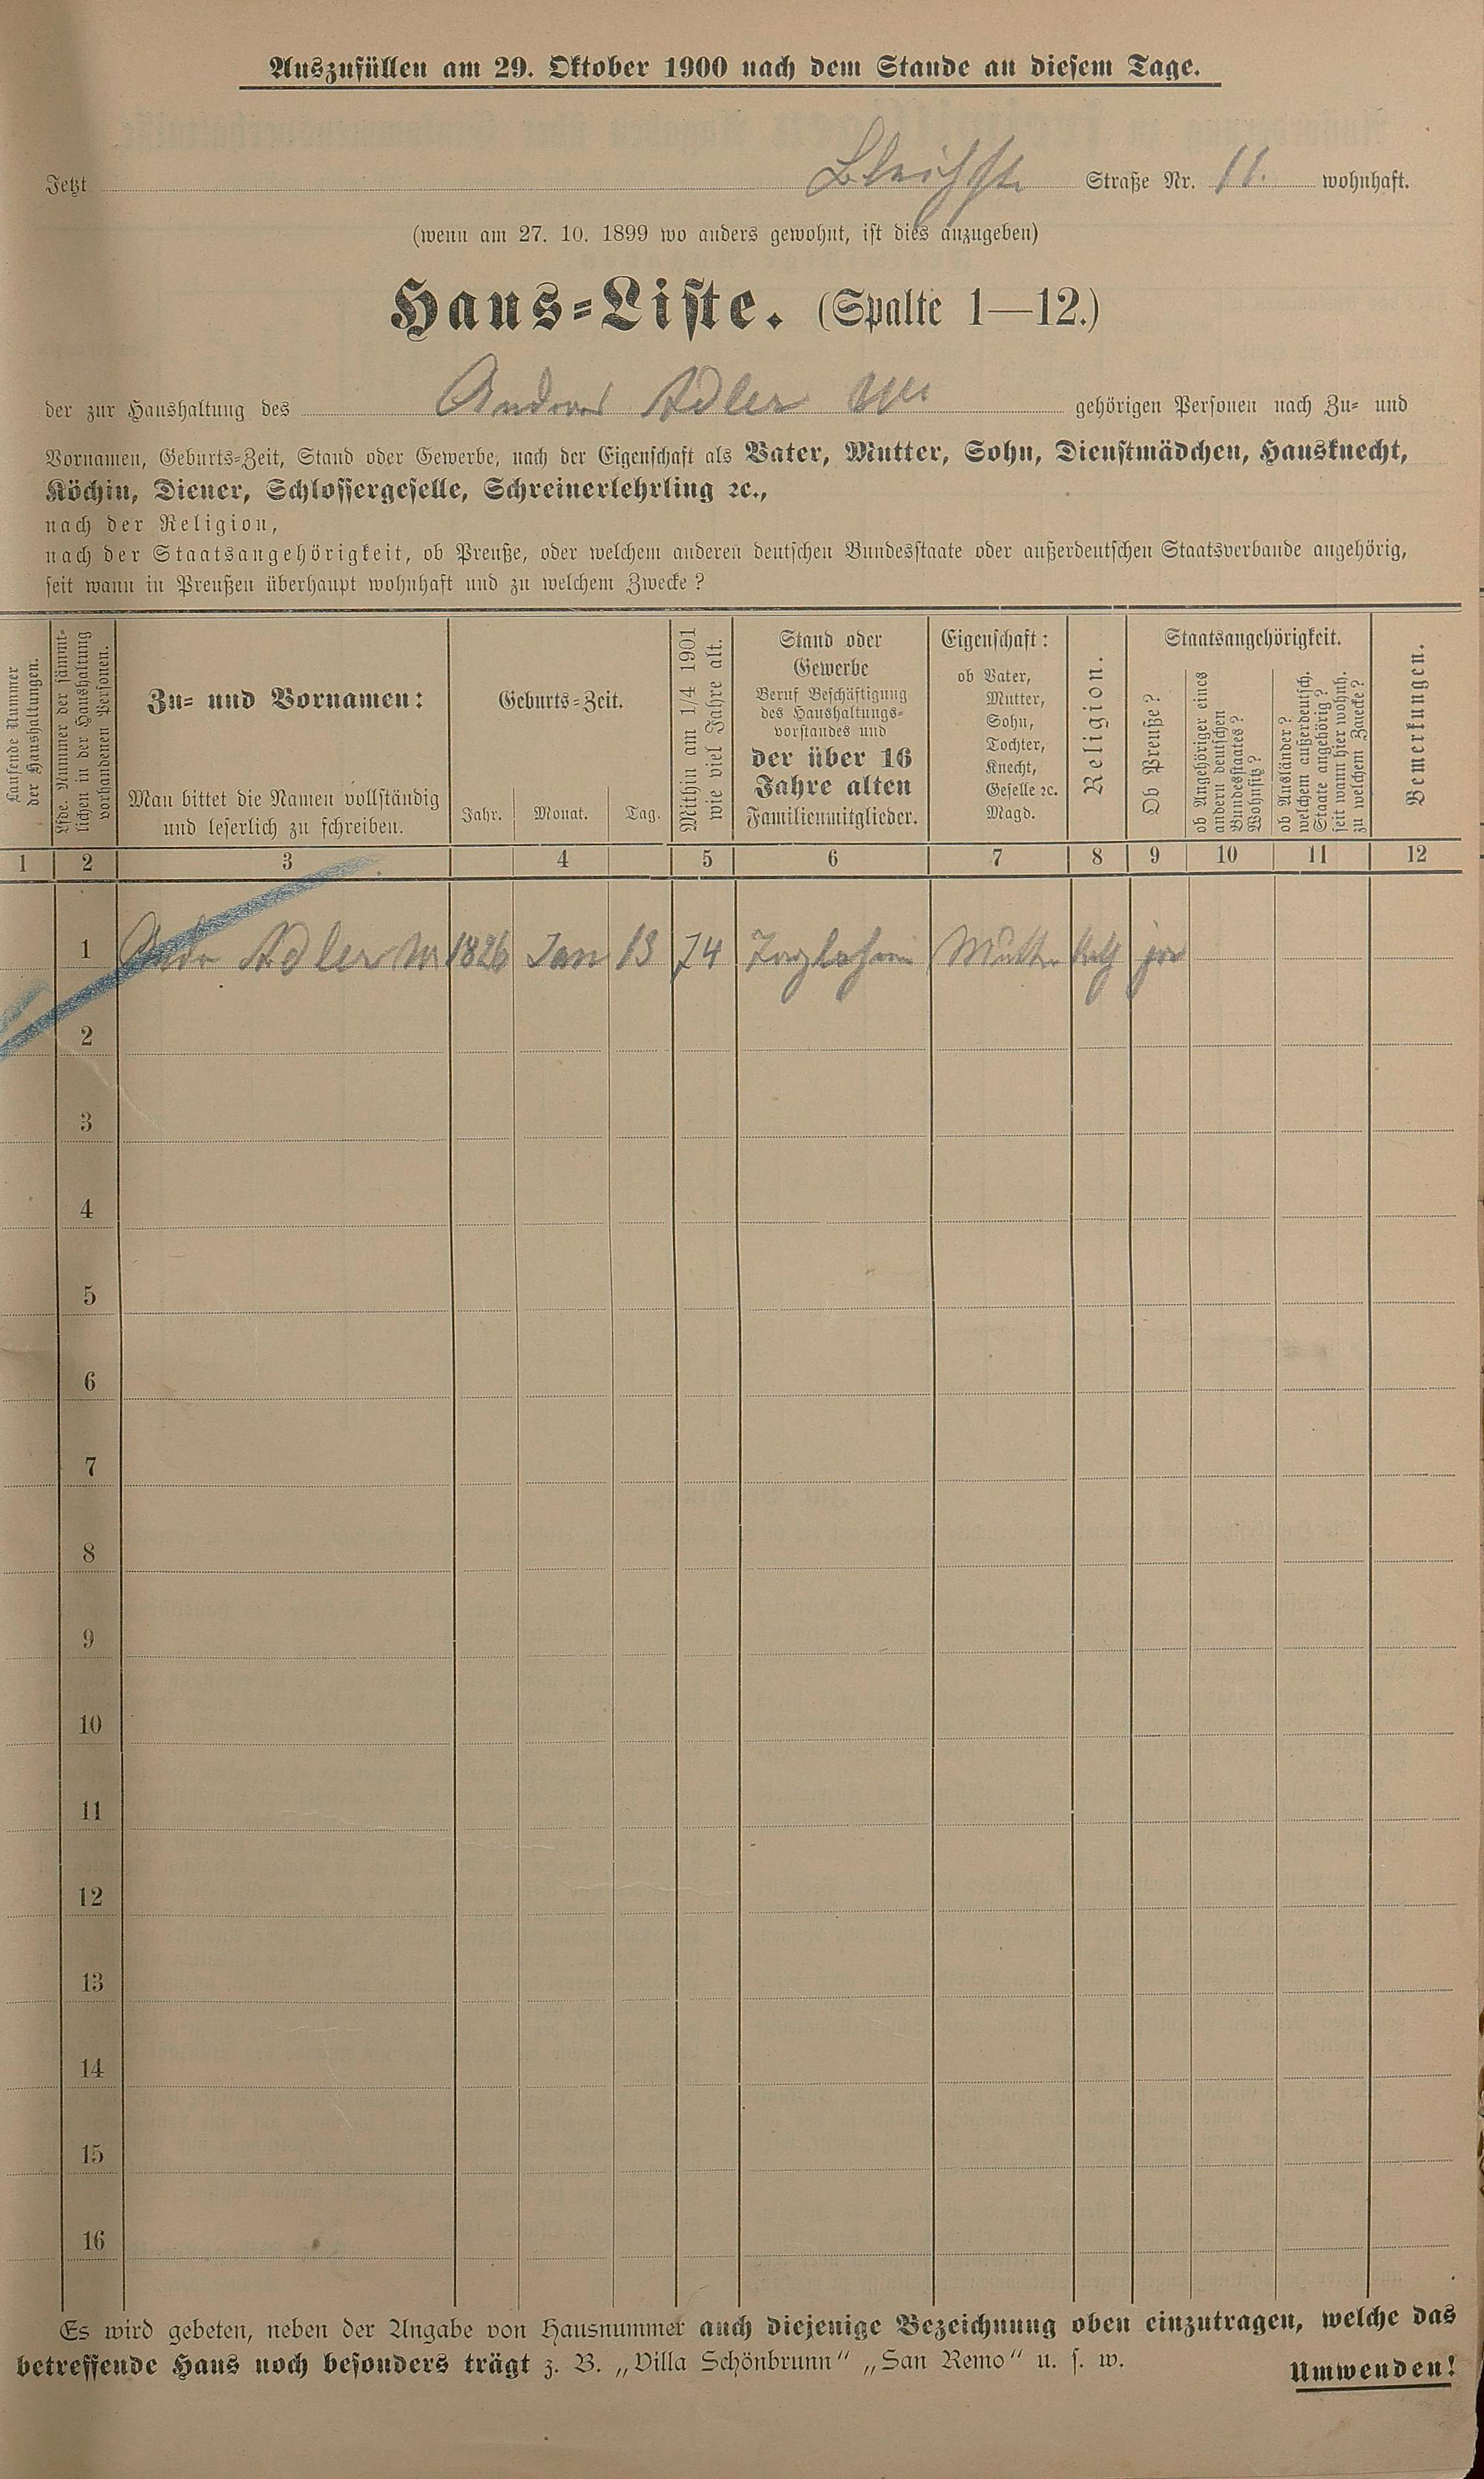 Auszufüllen am 29. Oktober 1900 nach dem Stande an diesem Tage.
Jetzt Bleichstr Straße Nr. 11. wohnhaft.
(wenn am 27. 10. 1899 wo anders gewohnt, ist dies anzugeben)
Haus-Liste. (Spalte 1—12.)
der zur Haushaltung des Andreas Adler Ww gehörigen Personen nach Zu- und
Vornamen, Geburts-Zeit, Stand oder Gewerbe, nach der Eigenschaft als Vater, Mutter, Sohn, Dienstmädchen, Hausknecht,
Köchin, Diener, Schlossergeselle, Schreinerlehrling ꝛc.,
nach der Religion,
nach der Staatsangehörigkeit, ob Preuße, oder welchem anderen deutschen Bundesstaate oder außerdeutschen Staatsverbande angehörig,
seit wann in Preußen überhaupt wohnhaft und zu welchem Zwecke?
Laufende Nummer
der Haushaltungen.
Lfde. Nummer der sämmt-
lichen in der Haushaltung
vorhandenen Personen.
Zu- und Vornamen:
Man bittet die Namen vollständig
und leserlich zu schreiben.
Geburts-Zeit.
Jahr. Monat. Tag.
Mithin am 1/4 1901
wie viel Jahre alt.
Stand oder
Gewerbe
Beruf Beschäftigung
des Haushaltungs-
vorstandes und
der über 16
Jahre alten
Familienmitglieder.
Eigenschaft:
ob Vater,
Mutter,
Sohn,
Tochter,
Knecht,
Geselle ꝛc.
Magd.
Religion.
Staatsangehörigkeit.
Ob Preuße?
ob Angehöriger eines
andern deutschen
Bundesstaates?
Wohnsitz?
ob Ausländer?
welchem außerdeutsch.
Staate angehörig?
seit wann hier wohnh.
zu welchem Zwecke?
Bemerkungen.
1 2 3 4 5 6 7 8 9 10 11 12
1 Adler 1826 Jan 13 74 Taglöhnerin Mutter kath ja
2
3
4
5
6
7
8
9
10
11
12
13
14
15
16
Es wird gebeten, neben der Angabe von Hausnummer auch diejenige Bezeichnung oben einzutragen, welche das
betreffende Haus noch besonders trägt z. B. „Villa Schönbrunn" „San Remo" u. s. w.
Umwenden!